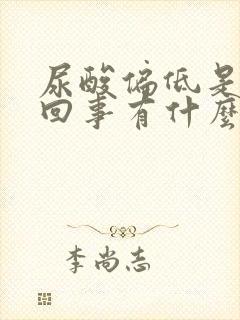 尿酸偏低是
回事有什麼
李尚志